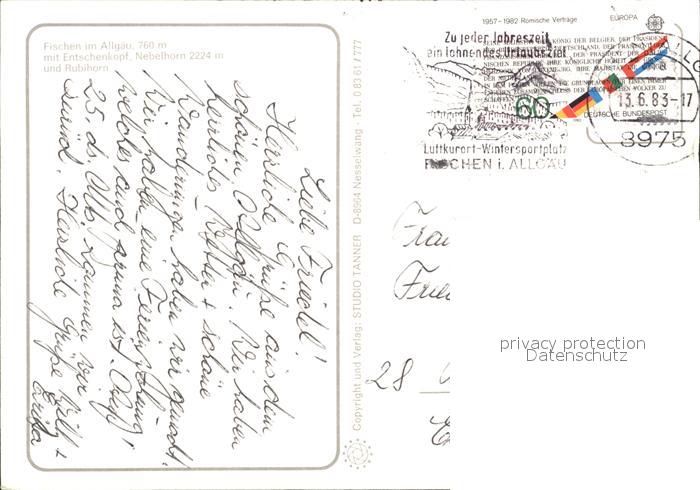 Fischen im Allgäu, 760 m
mit Entschenkopf, Nebelhorn 2224 m
und Rubihorn
Liebe Friedel!
Herzliche Grüße aus dem
schönen Allgäu. Wir haben
herrliches Wetter + schöne
Wanderungen haben wir gemacht.
Wir haben eine Ferienwohnung,
welches sind
25. ds. Mts. kommen wir
zurück. Herzliche Grüße Willi +
Erika
Copyright und Verlag: STUDIO TANNER D-8964 Nesselwang - Tel. 0 83 61 / 777
1957–1982 Römische Verträge EUROPA
60
DEUTSCHE BUNDESPOST
Zu jeder Jahreszeit
ein lohnendes Urlaubsziel
Luftkurort-Wintersportplatz
FISCHEN i. ALLGÄU
13.6.83-17
8975
Frau
28
privacy protection
Datenschutz